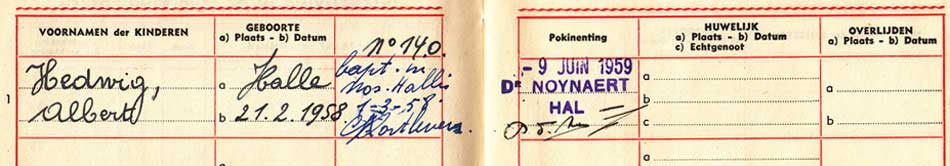 VOORNAMEN der KINDEREN
GEBOORTE
a) Plaats - b) Datum
N° 140.
Pokinenting
HUWELIJK
a) Plaats - b) Datum
c) Echtgenoot
OVERLIJDEN
a) Plaats - b) Datum
1
Hedwig,
a Halle
bapt. in
Albert
b 21.2.1958
nos. Hallis
1-3-58.
- 9 JUIN 1959
Dr NOYNAERT
HAL
a
b
c
a
b
a
a